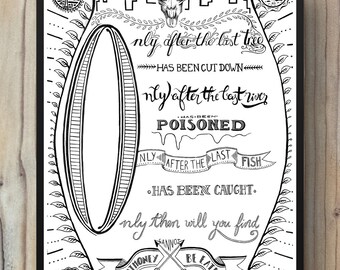 Only after the last tree
HAS BEEN CUT DOWN
Only after the last river
HAS BEEN
POISONED
ONLY AFTER THE LAST FISH
HAS BEEN CAUGHT.
Only then will you find
MONEY CANNOT BE EATEN